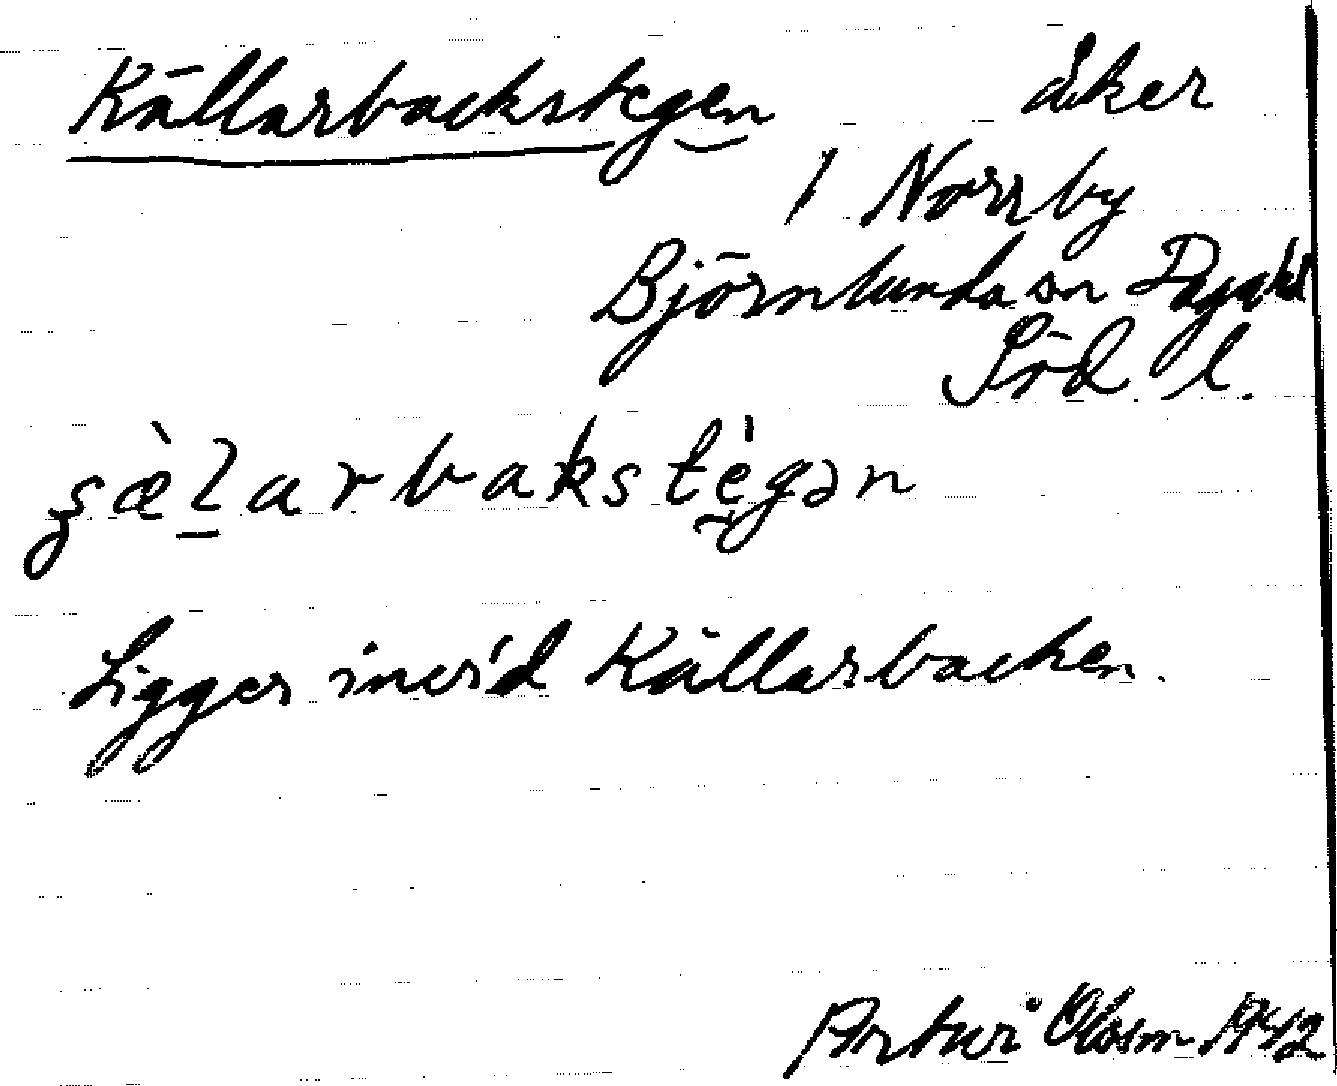 Källarbackstegen åker
1 Norrby
Björnlunda sn Daga hd
Söd l.
ȿæ̀l̠arbakstègən
Ligger invid Källarbacken.
Artur Olsson 1942